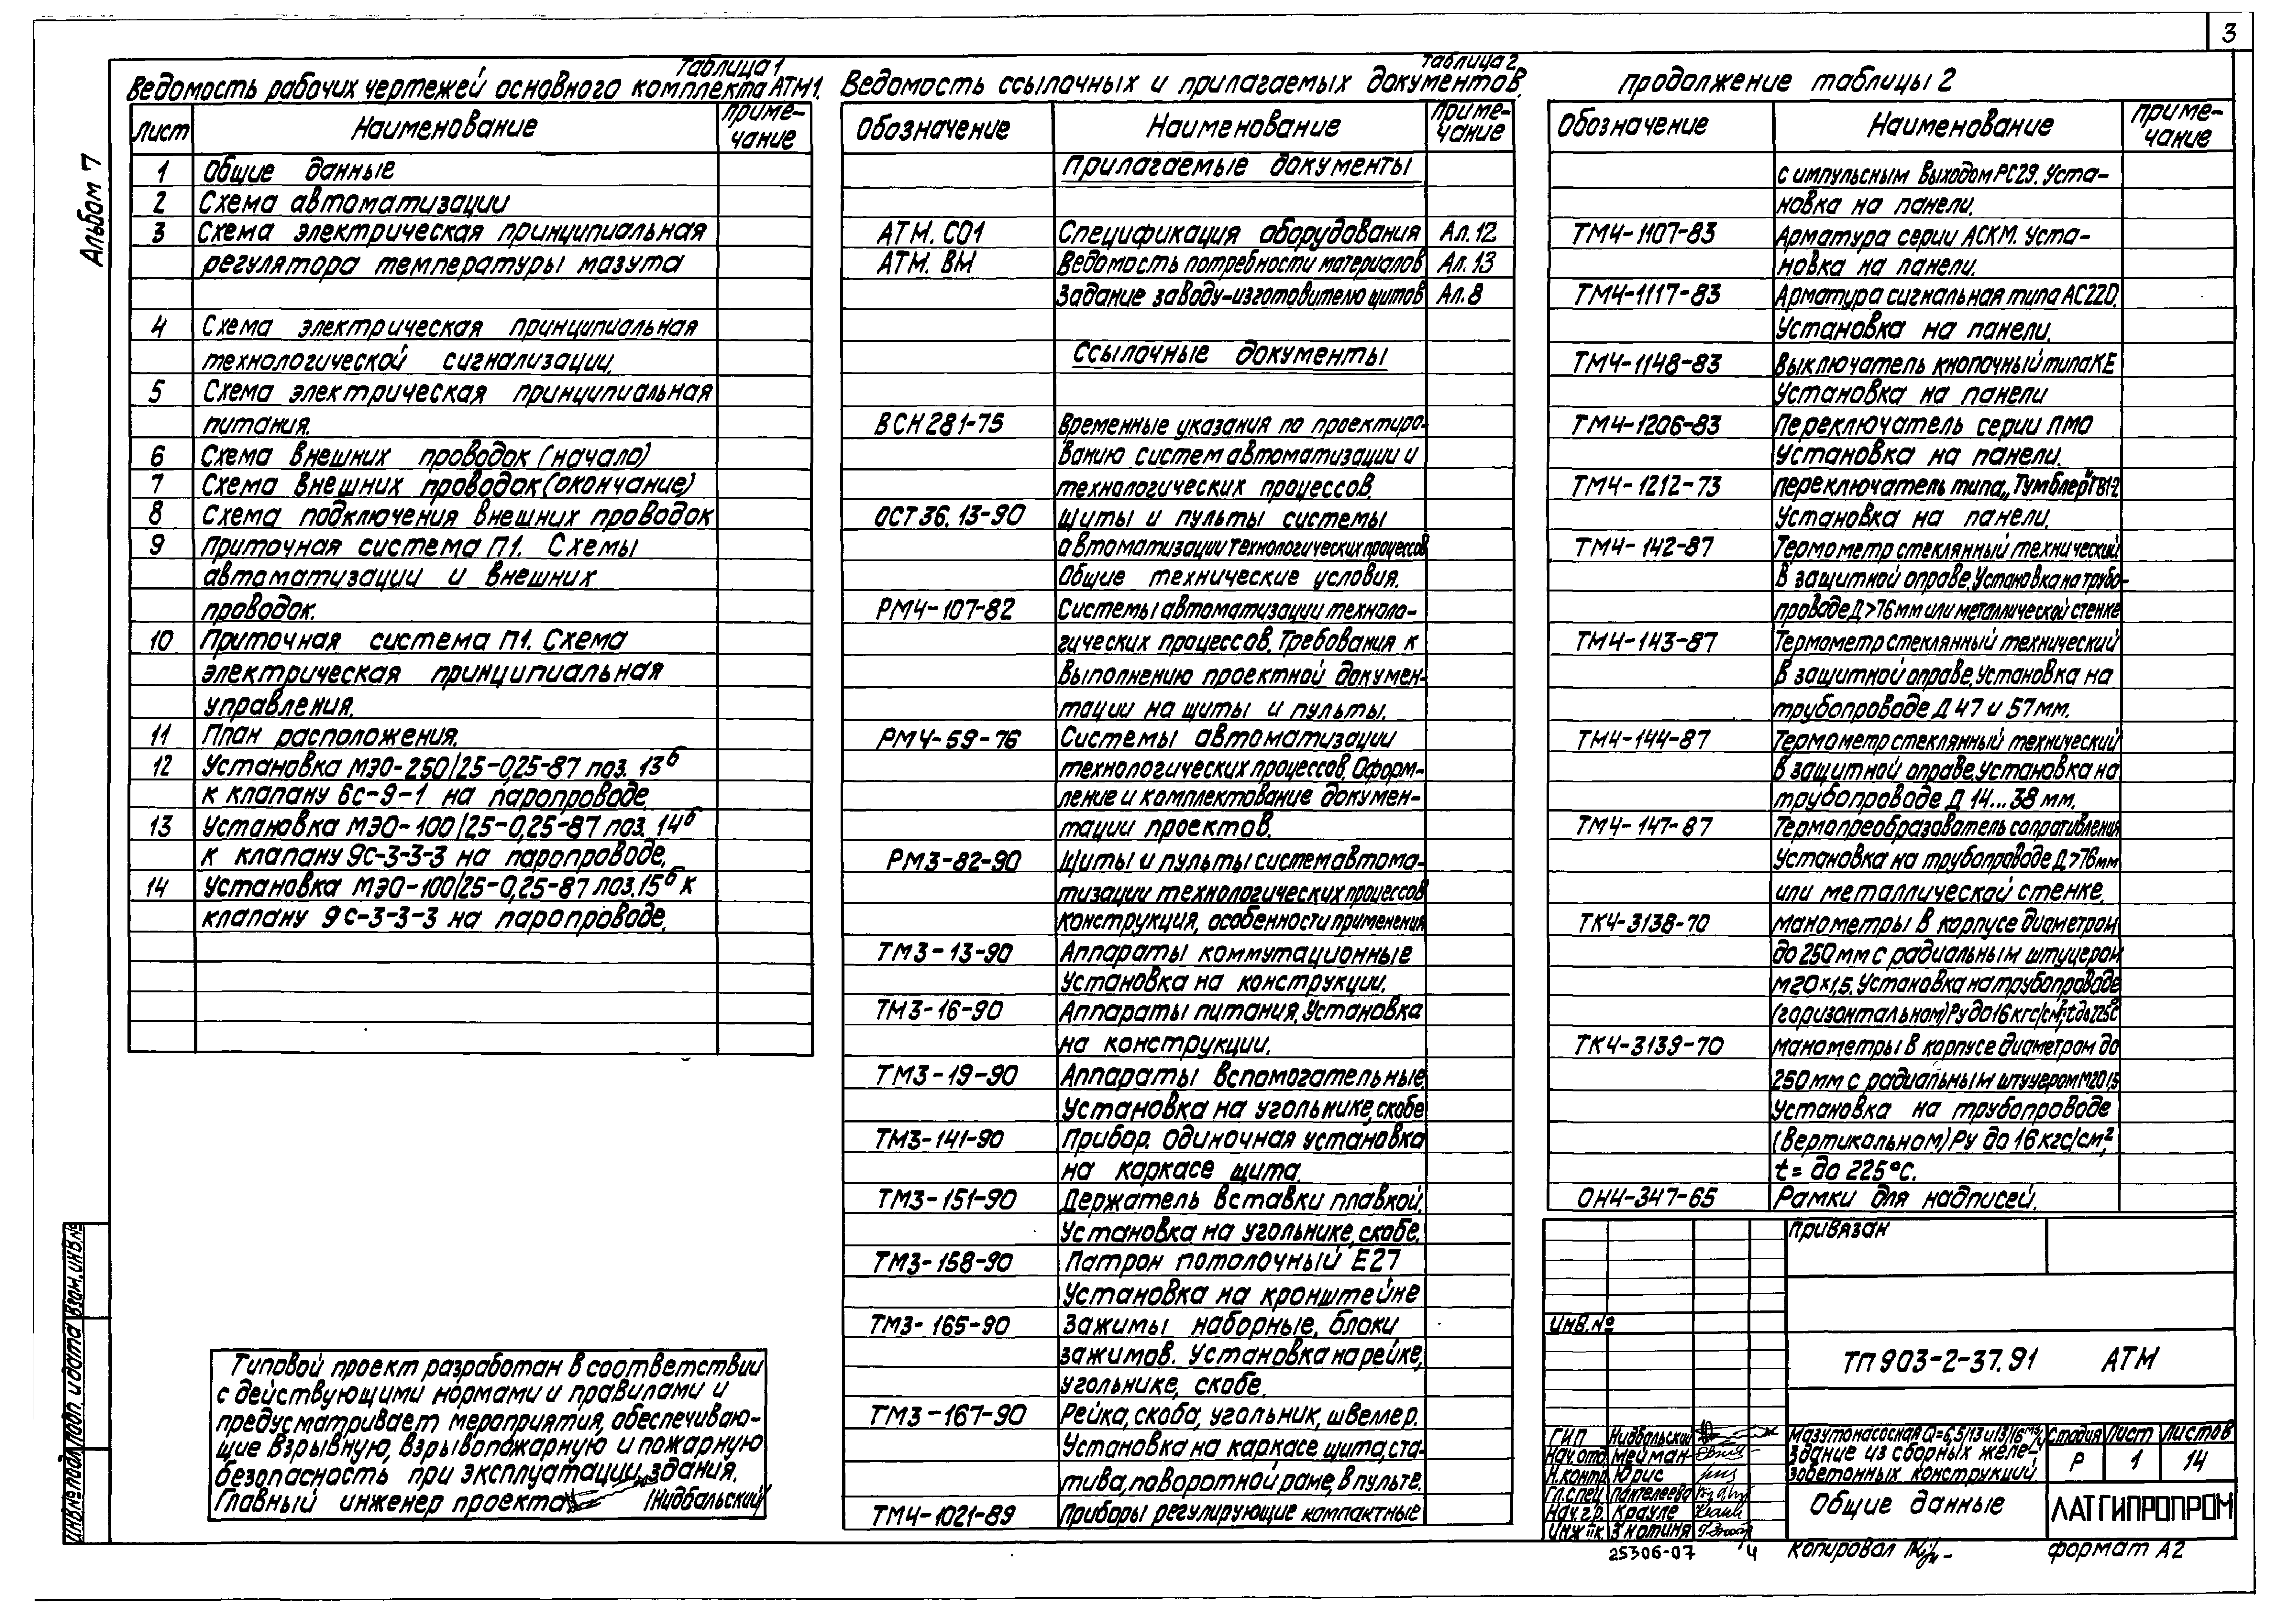 3
Альбом 7
Таблица 1
Ведомость рабочих чертежей основного комплекта АТМ1.
Лист Наименование Приме-
чание
1 Общие данные
2 Схема автоматизации
3 Схема электрическая принципиальная
регулятора температуры мазута
4 Схема электрическая принципиальная
технологической сигнализации.
5 Схема электрическая принципиальная
питания.
6 Схема внешних проводок (начало)
7 Схема внешних проводок (окончание)
8 Схема подключения внешних проводок
9 Приточная система П1. Схемы
автоматизации и внешних
проводок.
10 Приточная система П1. Схема
электрическая принципиальная
управления.
11 План расположения.
12 Установка МЭО-250/25-0,25-87 поз. 13б
к клапану 6с-9-1 на паропроводе.
13 Установка МЭО-100/25-0,25-87 поз. 14б
к клапану 9с-3-3-3 на паропроводе.
14 Установка МЭО-100/25-0,25-87 поз.15б к
клапану 9с-3-3-3 на паропроводе.
Типовой проект разработан в соответствии
с действующими нормами и правилами и
предусматривает мероприятия, обеспечиваю-
щие взрывную, взрывопожарную и пожарную
безопасность при эксплуатации здания.
Главный инженер проекта /Нидбальский/
Таблица 2
Ведомость ссылочных и прилагаемых документов.
Обозначение Наименование Приме-
чание
Прилагаемые документы
АТМ. СО1 Спецификация оборудования Ал. 12
АТМ. ВМ Ведомость потребности материалов Ал. 13
Задание заводу-изготовителю щитов Ал. 8
Ссылочные документы
ВСН 281-75 Временные указания по проектиро-
ванию систем автоматизации и
технологических процессов.
ОСТ 36. 13-90 Щиты и пульты системы
автоматизации технологических процессов
Общие технические условия.
РМ4-107-82 Системы автоматизации техноло-
гических процессов. Требования к
выполнению проектной докумен-
тации на щиты и пульты.
РМ4-59-76 Системы автоматизации
технологических процессов. Оформ-
ление и комплектование докумен-
тации проектов.
РМ3-82-90 Щиты и пульты систем автома-
тизации технологических процессов
конструкция, особенности применения
ТМ3-13-90 Аппараты коммутационные
Установка на конструкции.
ТМ3-16-90 Аппараты питания. Установка
на конструкции.
ТМ3-19-90 Аппараты вспомогательные.
Установка на угольнике, скобе
ТМ3-141-90 Прибор. Одиночная установка
на каркасе щита.
ТМ3-151-90 Держатель вставки плавкой.
Установка на угольнике, скобе.
ТМ3-158-90 Патрон потолочный Е27
Установка на кронштейне
ТМ3-165-90 Зажимы наборные, блоки
зажимов. Установка на рейке,
угольнике, скобе.
ТМ3-167-90 Рейка, скоба, угольник, швеллер.
Установка на каркасе щита, ста-
тива, поворотной раме, в пульте.
ТМ4-1021-89 Приборы регулирующие компактные
Продолжение таблицы 2
Обозначение Наименование Приме-
чание
с импульсным выходом РС29. Уста-
новка на панели.
ТМ4-1107-83 Арматура серии АСКМ. Уста-
новка на панели.
ТМ4-1117-83 Арматура сигнальная типа АС220.
Установка на панели.
ТМ4-1148-83 Выключатель кнопочный типа КЕ
Установка на панели
ТМ4-1206-83 Переключатель серии ПМО
Установка на панели.
ТМ4-1212-73 Переключатель типа „Тумблер" ТВ1-2
Установка на панели.
ТМ4-142-87 Термометр стеклянный технический
в защитной оправе. Установка на трубо-
проводе Д>76мм или металлической стенке
ТМ4-143-87 Термометр стеклянный технический
в защитной оправе. Установка на
трубопроводе Д 47 и 57мм.
ТМ4-144-87 Термометр стеклянный технический
в защитной оправе. Установка на
трубопроводе Д 14...38 мм.
ТМ4-147-87 Термопреобразователь сопротивления
Установка на трубопроводе Д>76мм
или металлической стенке.
ТК4-3138-70 Манометры в корпусе диаметром
до 250мм с радиальным штуцером
М20×1,5. Установка на трубопроводе
(горизонтальном) Ру до 16 кгс/см², t до 225°С
ТК4-3139-70 Манометры в корпусе диаметром до
250мм с радиальным штуцером М20 1,5
Установка на трубопроводе
(вертикальном) Ру до 16 кгс/см²,
t= до 225°С.
ОН4-347-65 Рамки для надписей.
Привязан
Инв.№
ТП 903-2-37.91 АТМ
ГИП Нидбальский
Нач. отд. Мейман
Н.контр. Юрис
Гл.спец. Пантелеева
Нач.гр. Крауле
Инж IIк. Знотиня
Мазутонасосная Q=6,5/13 и 13/16 м³/ч
Здание из сборных желе-
зобетонных конструкций.
Стадия Лист Листов
Р 1 14
Общие данные
ЛАТГИПРОПРОМ
25306-07 4 Копировал Формат А2
Инв.№ подл. Подп. и дата Взам.инв.№